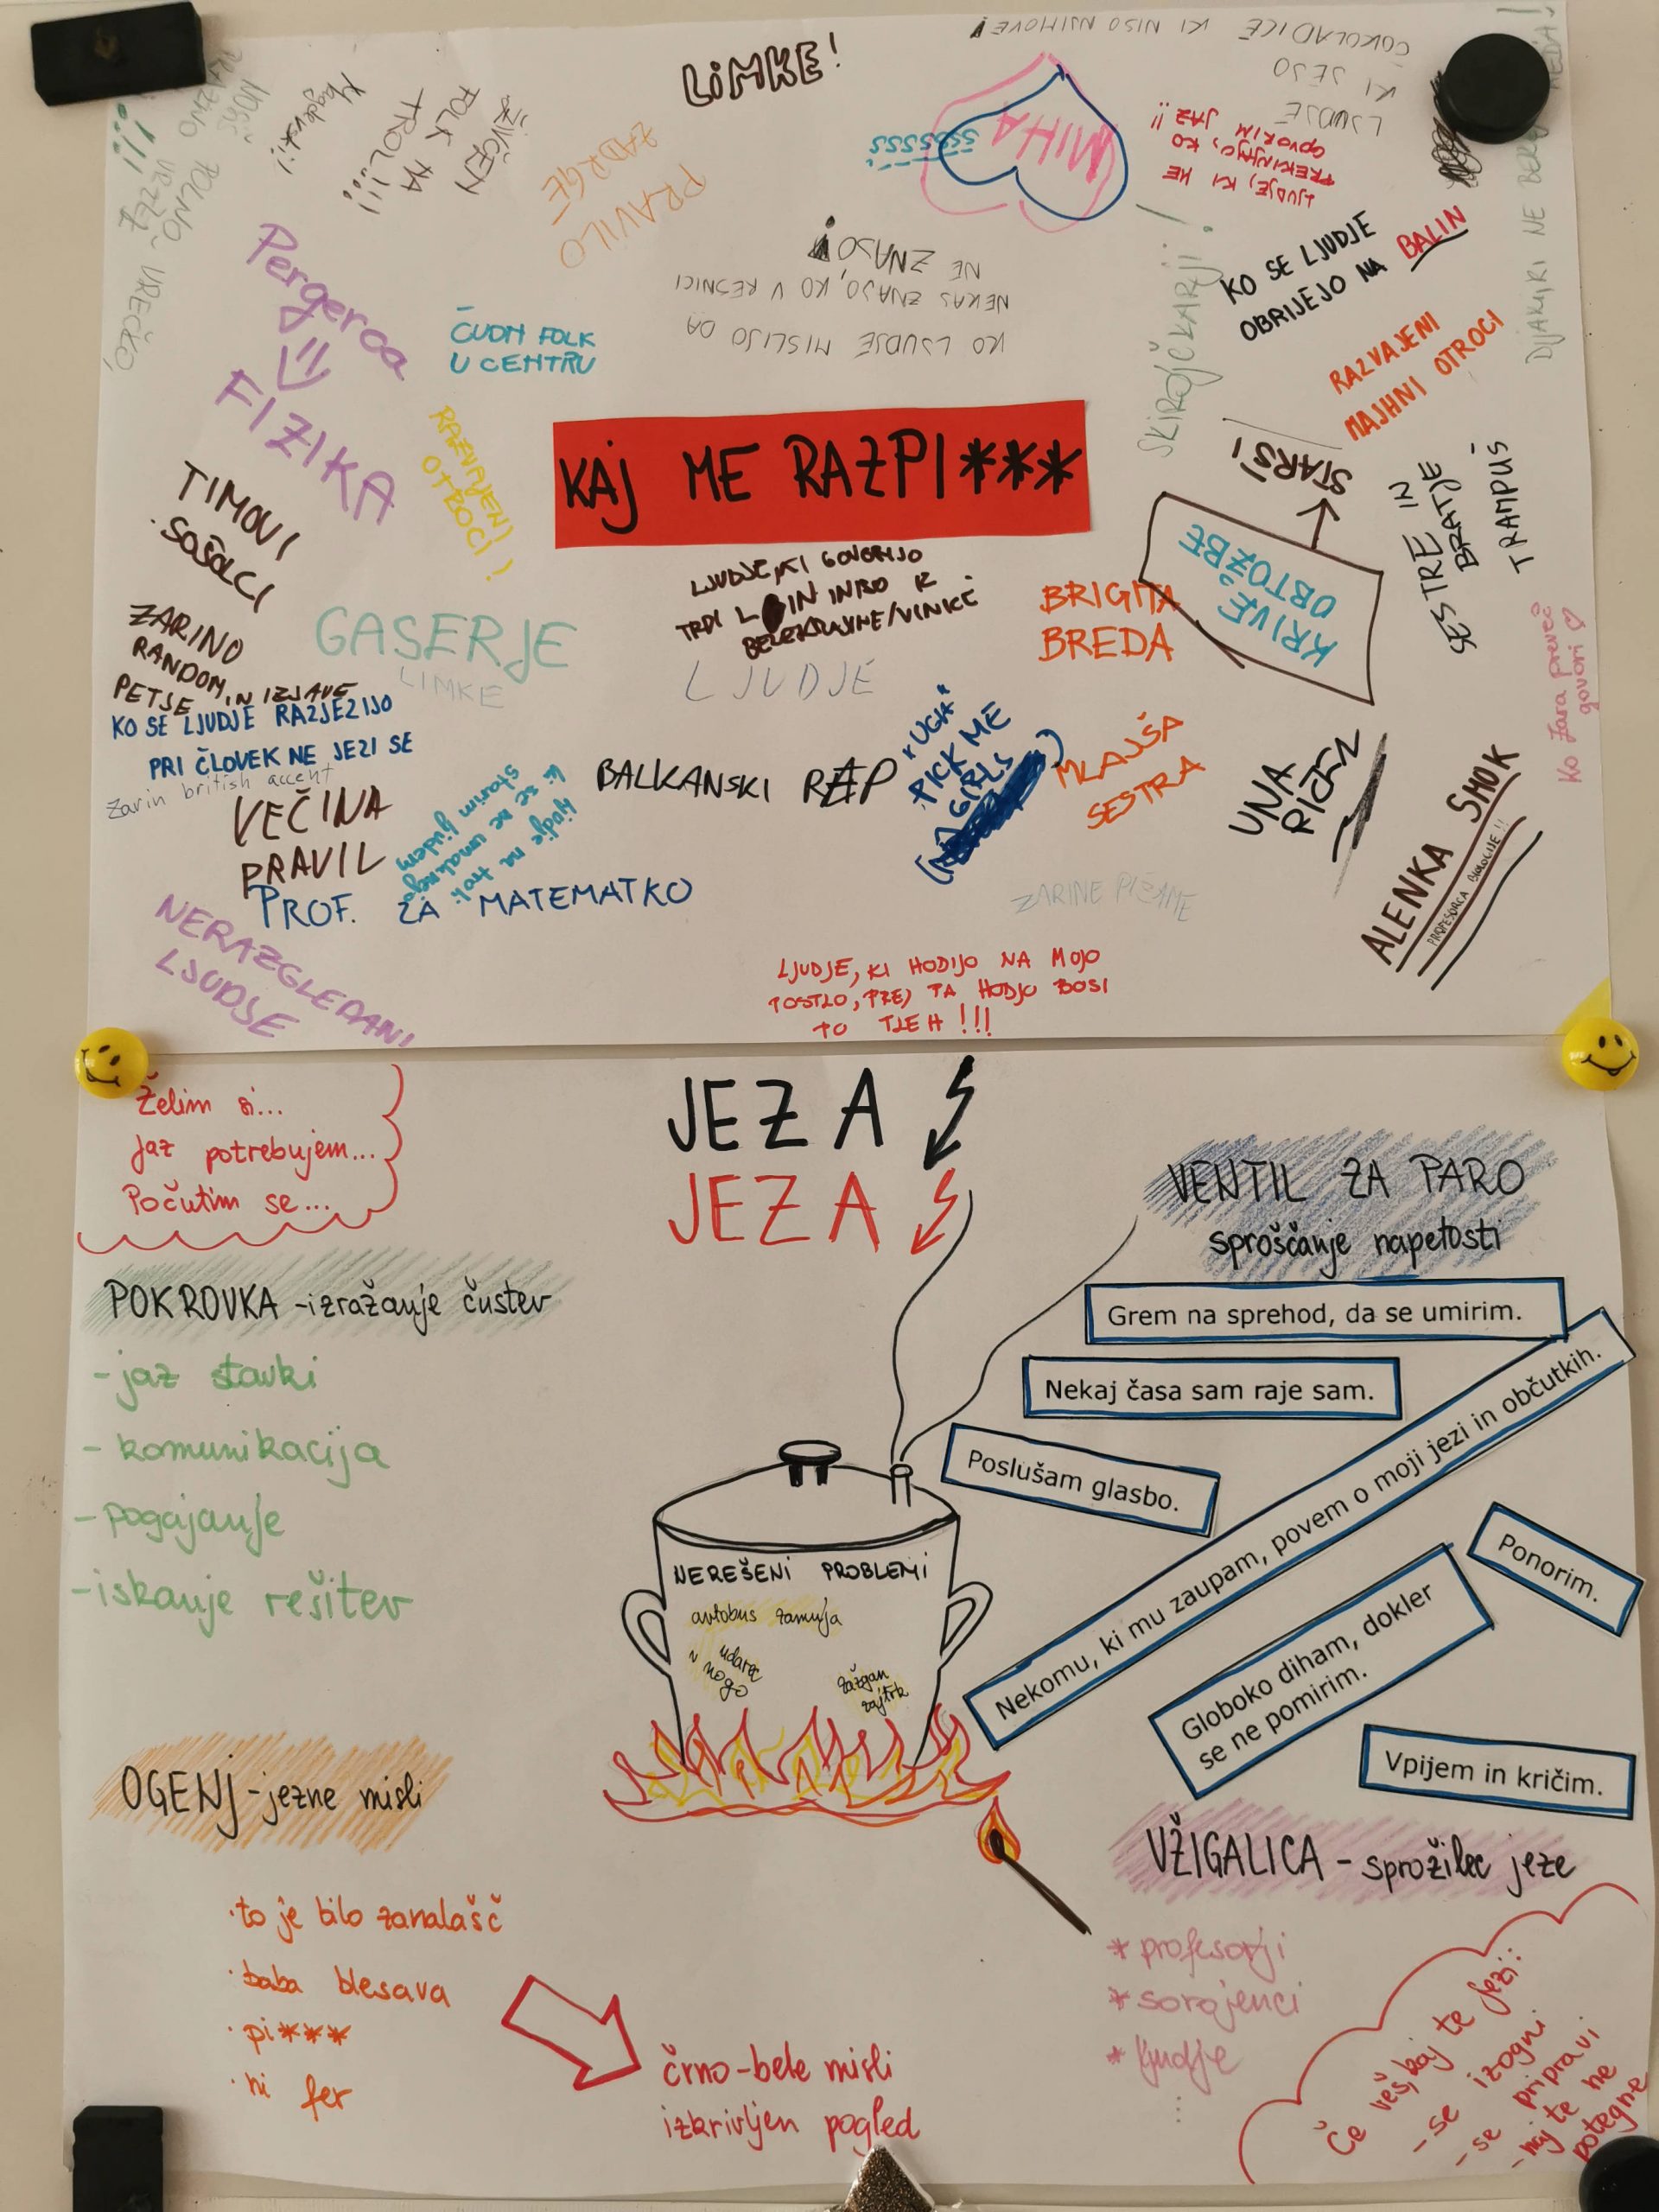 LIMKE!
ČOKOLADICE KI NISO NJIHOVE!
KI JEJO
LJUDJE
LJUDJE, KI ME
PREKINJAJO, KO
GOVORIM JAZ !!
MIHA
SSSSSSS
ŽIVČEN
FOLK NA
TROLI!!!
PRAVILO
ZADRGE
KO LJUDJE MISLIJO DA
NEKAJ ZNAJO, KO V RESNICI
NE ZNAJO!
SKIROJČKARJI!
KO SE LJUDJE
OBRIJEJO NA BALIN
RAZVAJENI
MAJHNI OTROCI
Pergerca
=
FIZIKA
ČUDN FOLK
U CENTRU
RAZVAJENI
OTROCI!
KAJ ME RAZPI***
STARŠI
KRIVE
OBTOŽBE
SESTRE IN
BRATJE
TRAMPUŠ
TIMOVI
SOŠOLCI
ZARINO
RANDOM
PETJE IN IZJAVE
GASERJE
LIMKE
LJUDJE, KI GOVORIJO
LJUDJE
BRIGITA
BREDA
Ko Zara preveč
govori
KO SE LJUDJE RAZJEZIJO
PRI ČLOVEK NE JEZI SE
Zarin british accent
VEČINA
PRAVIL
ljudje na troli
ki se ne umaknejo
starim ljudem
BALKANSKI REP
*UGH*
PICK ME
GIRLS
MLAJŠA
SESTRA
UNA
RIŽEM
ALENKA SMOK
PROFESORCA BIOLOGIJE!!
PROF. ZA MATEMATKO
ZARINE PIŽAME
NERAZGLEDANI
LJUDJE
LJUDJE, KI HODIJO NA MOJO
POSTLO, PREJ PA HODJO BOSI
PO TLEH!!!
Želim si...
Jaz potrebujem...
Počutim se...
JEZA
JEZA
VENTIL ZA PARO
sproščanje napetosti
POKROVKA - izražanje čustev
- jaz stavki
- komunikacija
- pogajanje
- iskanje rešitev
Grem na sprehod, da se umirim.
Nekaj časa sam raje sam.
Poslušam glasbo.
Nekomu, ki mu zaupam, povem o moji jezi in občutkih.
Ponorim.
Globoko diham, dokler
se ne pomirim.
Vpijem in kričim.
NEREŠENI PROBLEMI
avtobus zamuja
udarec
v nogo
zažgan
zajtrk
OGENJ - jezne misli
· to je bilo zanalašč
· baba blesava
· pi***
· ni fer
črno-bele misli
izkrivljen pogled
VŽIGALICA - sprožilec jeze
* profesorji
* sorojenci
* ljudje
...
Če veš, kaj te jezi:
- se izogni
- se pripravi
- naj te ne
potegne